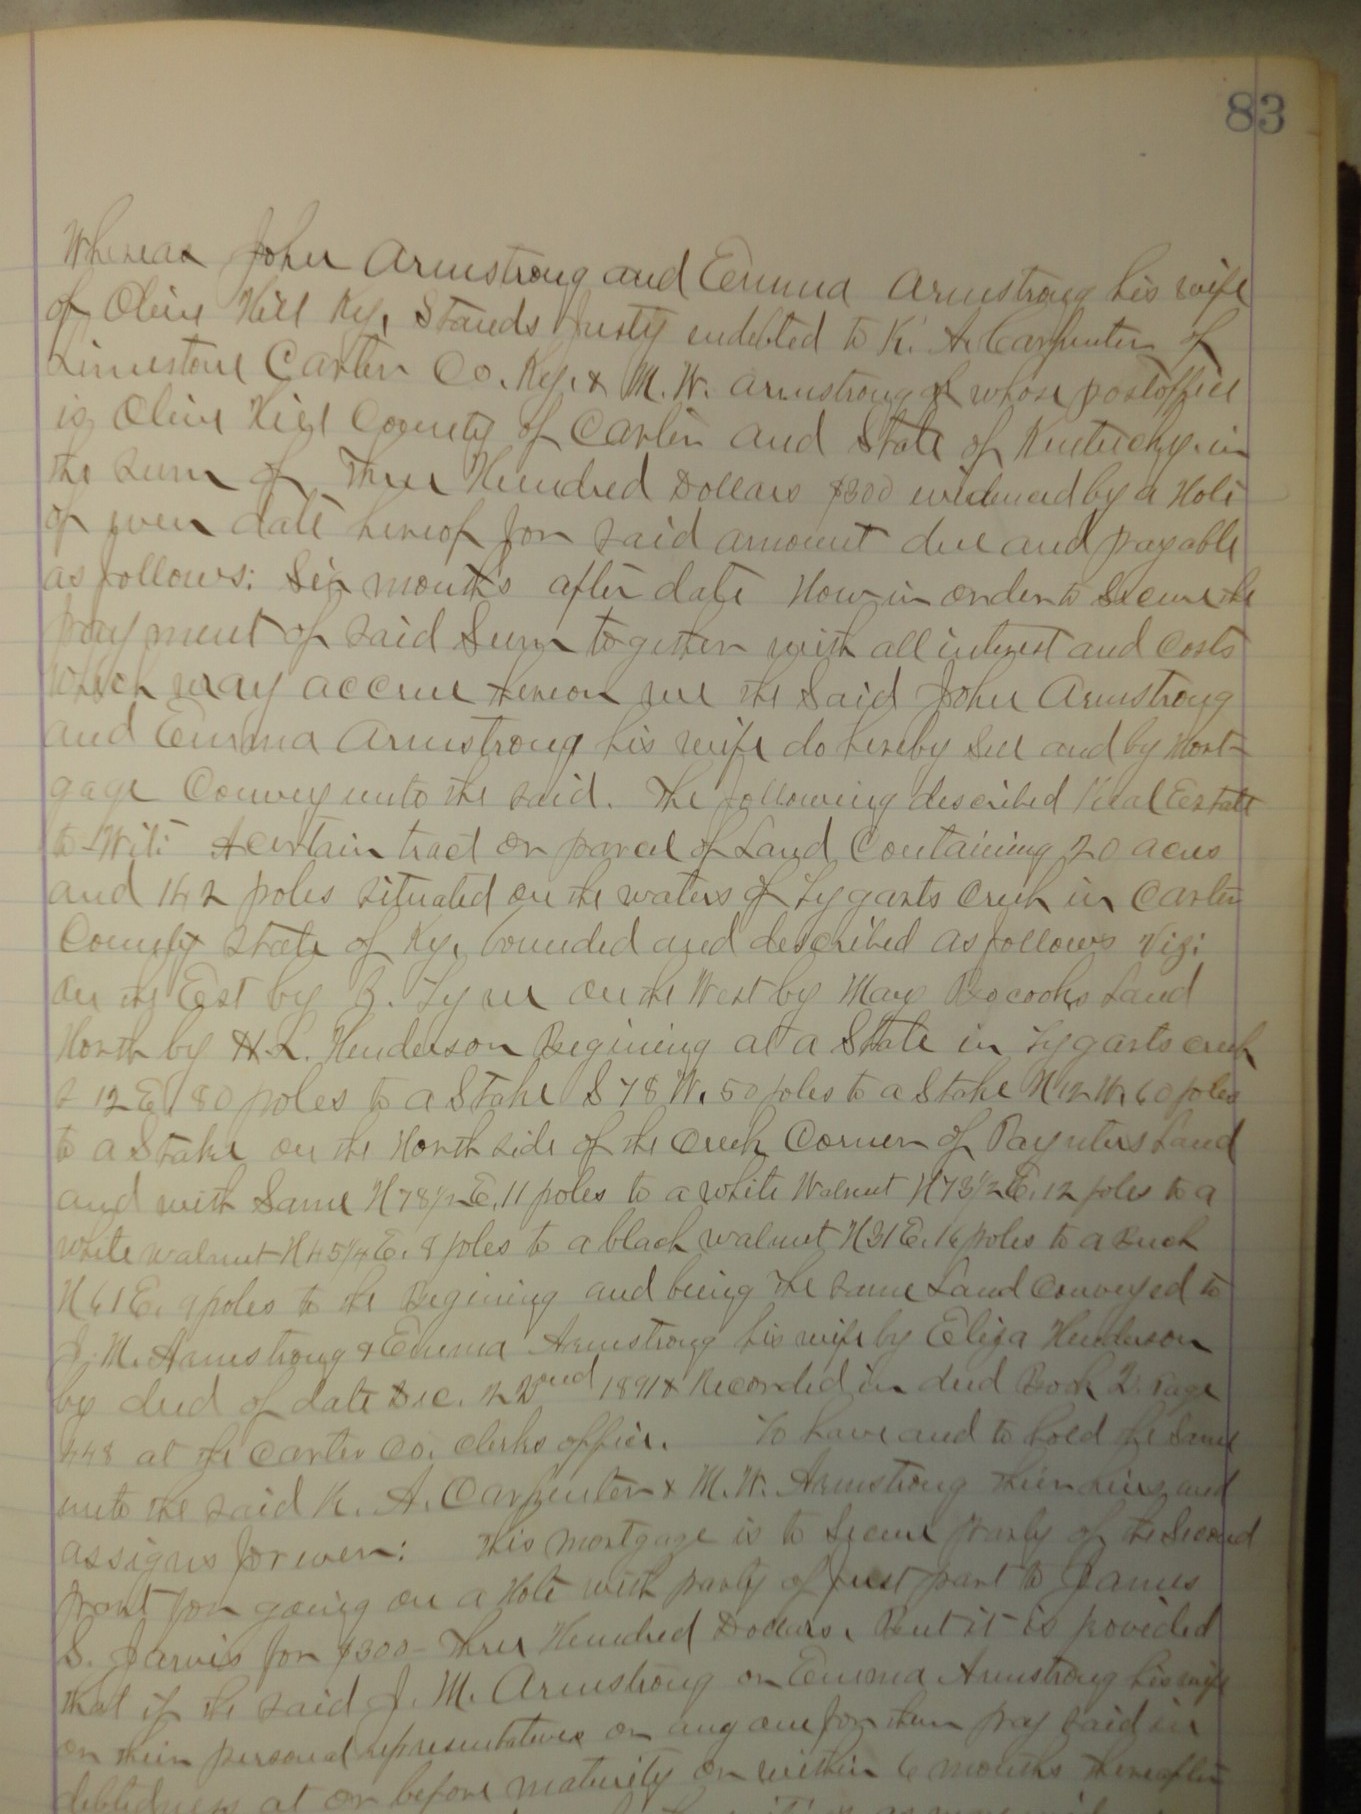 83
Whereas John Armstrong and Emma Armstrong his wife
of Olive Hill Ky, Stands Justly endebted to K. A. Carpenter of
Limestone Carter Co. Ky. & M. W. Armstrong of whose postoffice
is Olive Hill County of Carter and State of Kentucky. in
the Sum of Three Hundred Dollars $300 evidenced by a Note
of even date hereof for said amount due and payable
as follows: Six months after date Now in order to Secure the
payment of said Sum together with all interest and costs
Which may accrue thereon we the Said John Armstrong
and Emma Armstrong his wife do hereby Sell and by Mort-
gage Convey unto the said. The following described Real Estate
to-Wit: A certain tract or parcel of Land Containing 20 acres
and 142 poles situated on the waters of Tygarts Creek in Carter
County State of Ky, bounded and described as follows Viz:
On the East by J. Tyre on the West by Mary Bocooks Land
North by H. L. Henderson Begining at a State in Tygarts creek
S 12 E. 80 poles to a Stake S 78 W. 50 poles to a Stake N 12 W. 60 poles
to a Stake on the North side of the creek Corner of Paynters Land
and with Same N 78½ E. 11 poles to a white Walnut N 73½ E. 12 poles to a
white walnut N 45¼ E. 8 poles to a black walnut N 31 E. 16 poles to a
N 61 E. 9 poles to the Begining and being the same Land Conveyed to
J. M. Armstrong & Emma Armstrong his wife by Eliza Henderson
by deed of date Dec. 22nd 1891 & Recorded in deed Book Page
448 at the Carter Co. Clerks office. To have and to hold the Same
unto the said K. A. Carpenter & M. W. Armstrong their heirs and
assigns forever: This mortgage is to Secure party of the Second
part for going on a Note with party of first part to James
S. Jarvis for $300 - Three Hundred Dollars. But it is provided
that if the said J. M. Armstrong or Emma Armstrong his wife
or their personal representatives or any one for them pay said in
debtedness at or before maturity or within 6 months thereafter